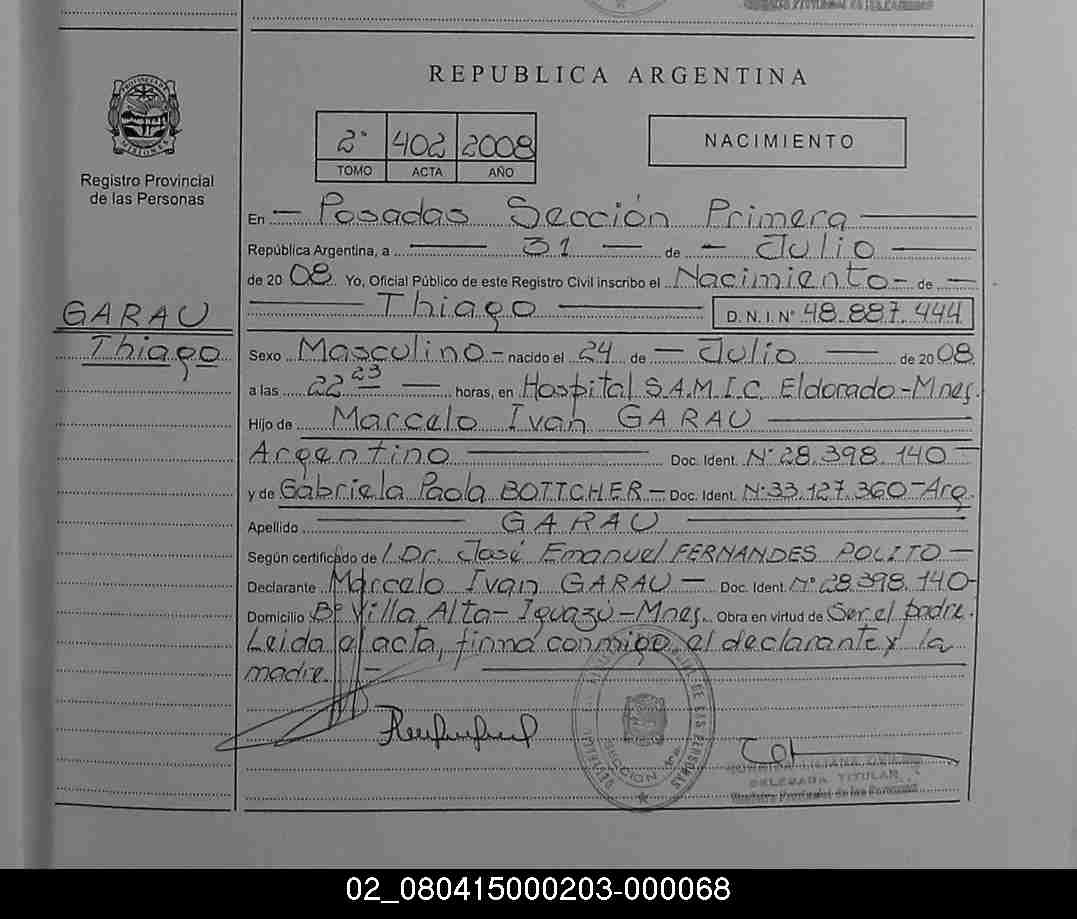 REPUBLICA ARGENTINA
PROVINCIA DE MISIONES
Registro Provincial
de las Personas
2° 402 2008
TOMO ACTA AÑO
NACIMIENTO
En — Posadas Sección Primera —
República Argentina, a — 31 — de — Julio —
de 20 08. Yo, Oficial Público de este Registro Civil inscribo el Nacimiento — de —
— Thiago — D. N. I. N° 48.887.444
GARAU
Thiago
Sexo Masculino — nacido el 24 de — Julio — de 20 08
a las 22 23 — horas, en Hospital S.A.M.I.C. Eldorado - Mnes.
Hijo de Marcelo Ivan GARAU —
Argentino — Doc. Ident. N° 28.398.140 —
y de Gabriela Paola BOTTCHER — Doc. Ident. N° 33.127.360 - Arg.
Apellido — GARAU —
Según certificado de l Dr. José Emanuel FERNANDES POLITO —
Declarante Marcelo Ivan GARAU — Doc. Ident. N° 28.398.140 -
Domicilio B° Villa Alta - Iguazú - Mnes. Obra en virtud de Ser el padre.
Leida el acta, firma conmigo, el declarante y la
madre. —
DE LAS PERSONAS
SECCION 1ra
LILIANA
DELEGADA TITULAR
Registro Provincial de las Personas
02_080415000203-000068